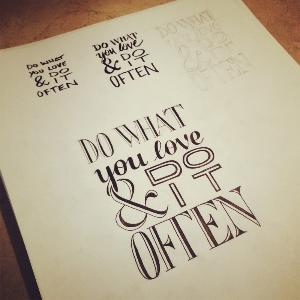 DO WHAT
you love
& DO
IT
OFTEN
DO WHAT
you love
& DO
IT
OFTEN
DO WHAT
DO WHAT
you love
& DO
IT
OFTEN